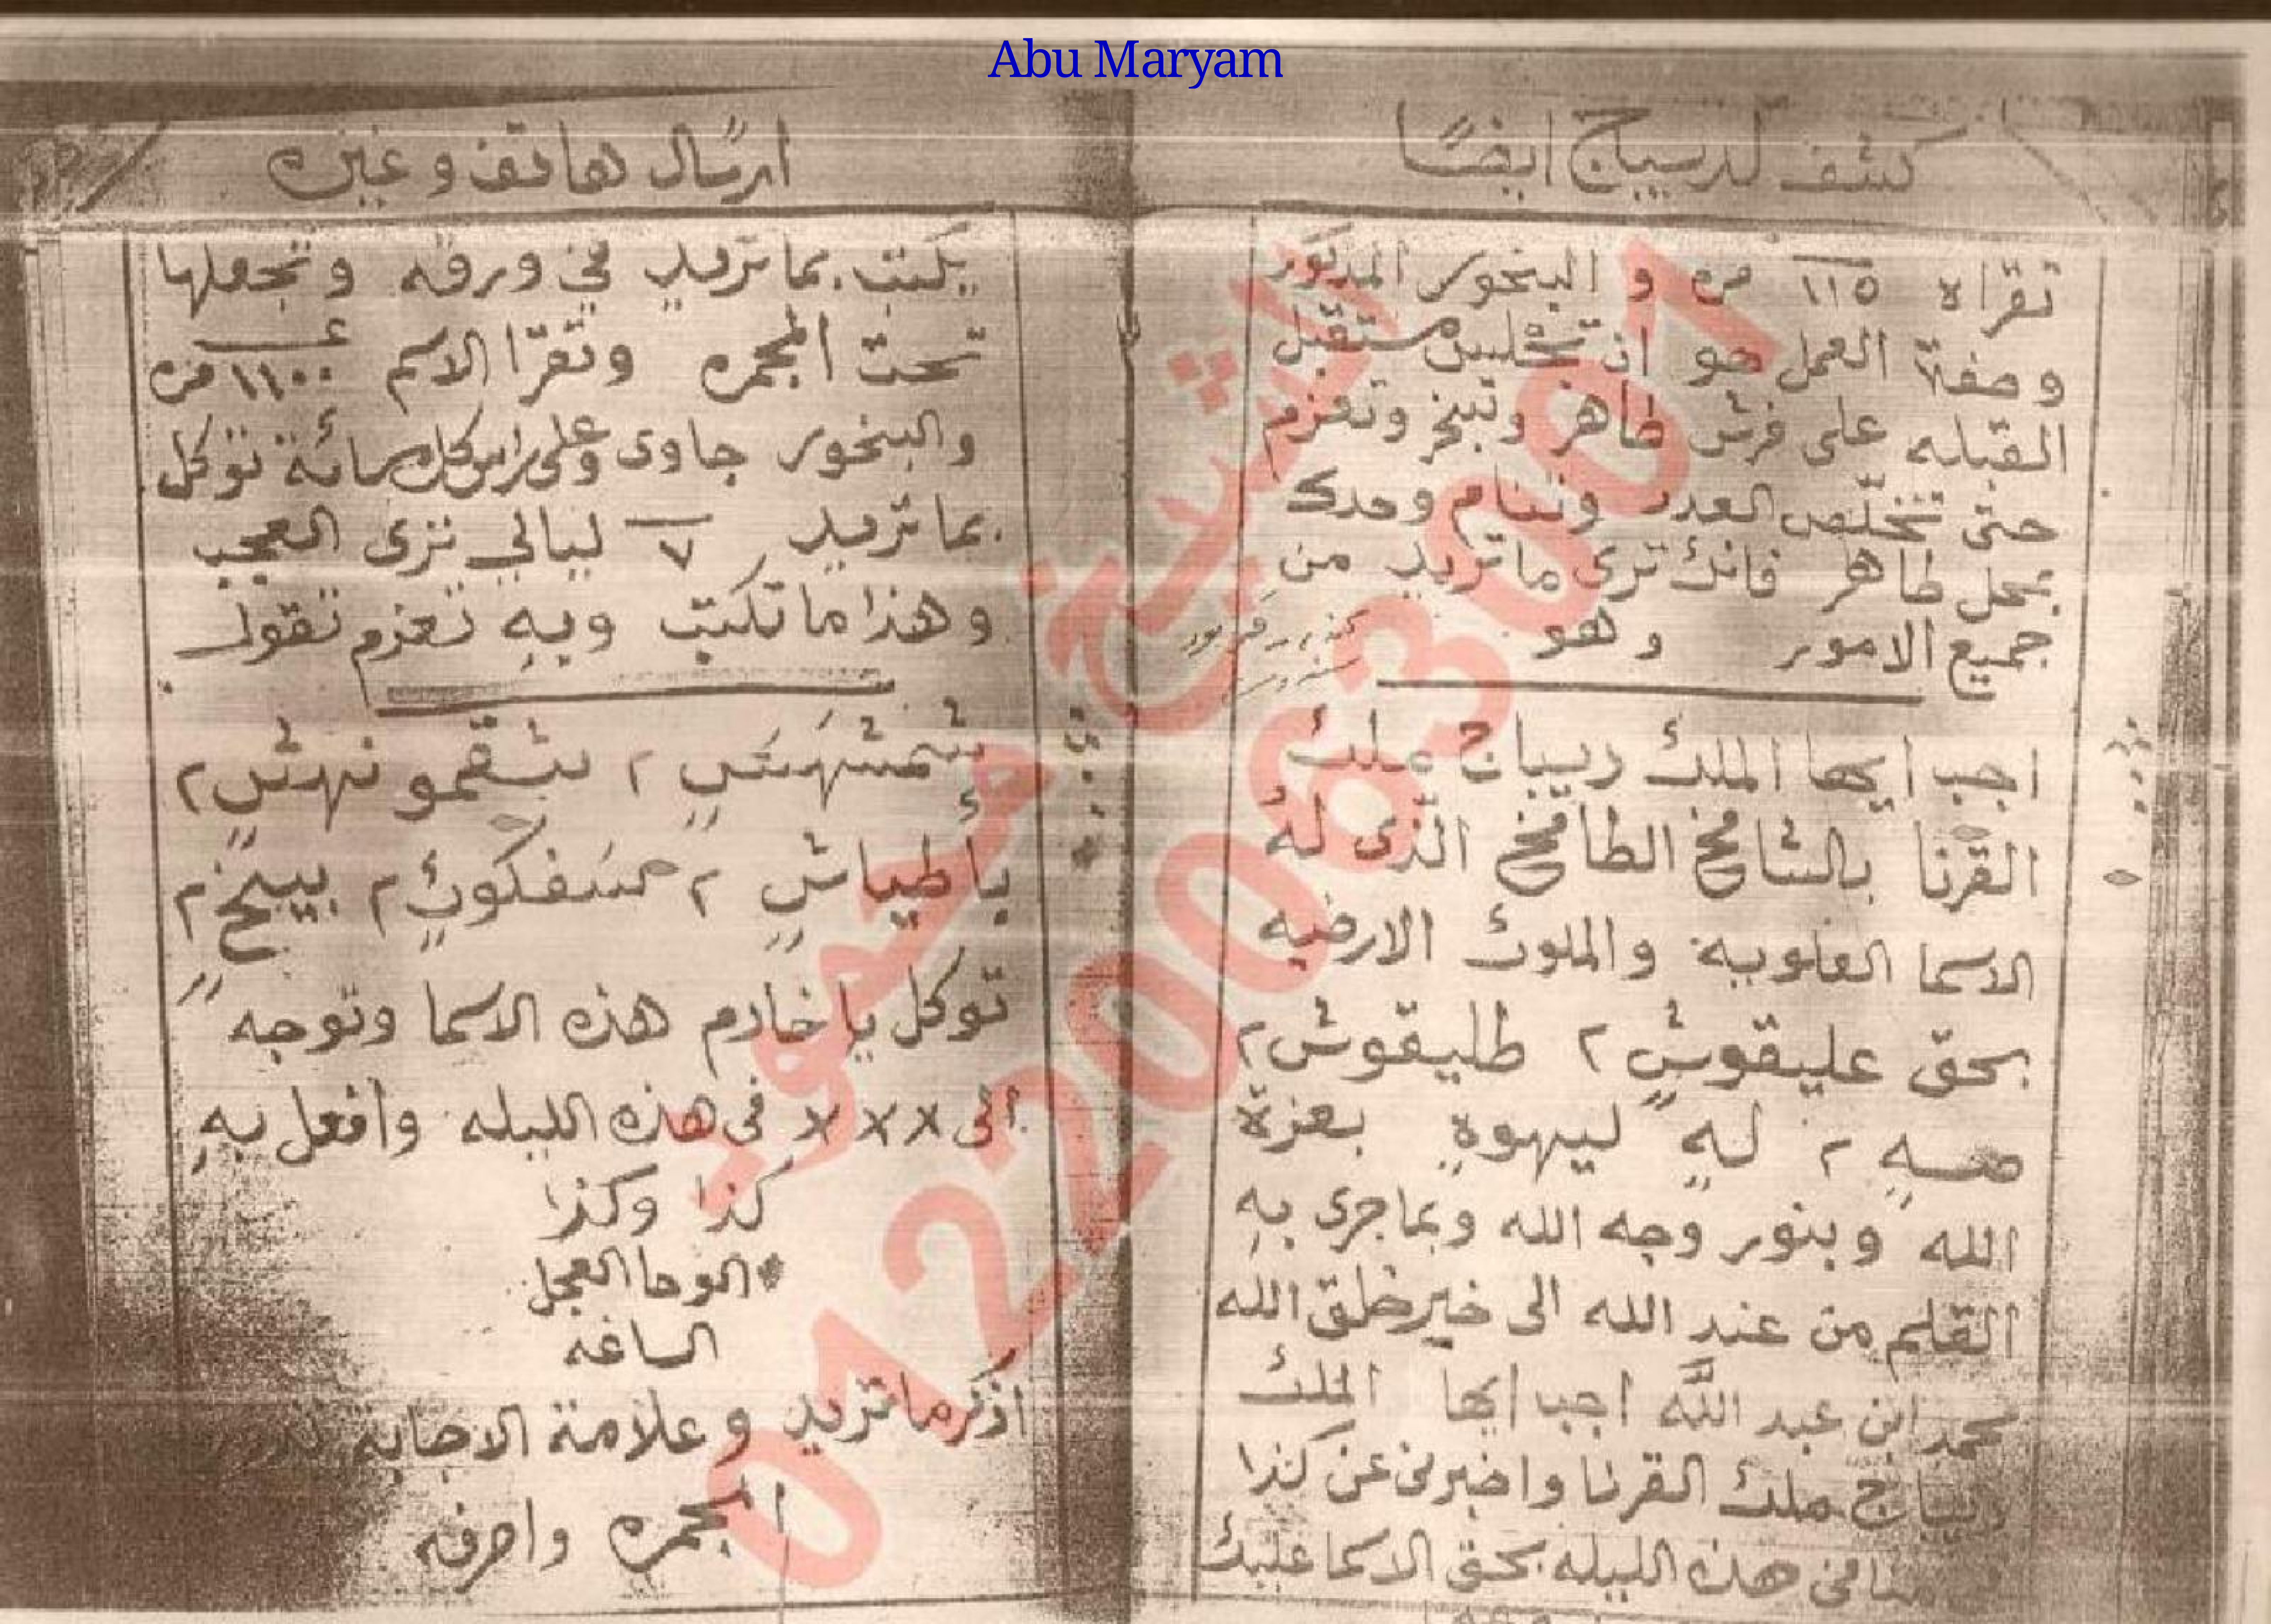 Abu Maryam
كشف لديباج ايضًا
تقراه ١١٥ مره و البخور المذكور
وصفة العمل هو ان تجلس مستقبل
القبله على فرش طاهر وتبخر وتعزم
حتى تخلّص العدد وتنام وحدك
بمحل طاهر فانك ترى ما تريد من
جميع الامور وهو
اجب ايها الملك ديباج ملك
القرنا بالشامخ الطامخ الذى له
الاسما العلوية والملوك الارضيه
بحق عليقوش ٢ طليقوش ٢
صه ٢ له ليهوة بعزة
الله وبنور وجه الله وبما جرى به
القلم من عند الله الى خير خلق الله
محمد ابن عبد الله اجب ايها الملك
ديباج ملك القرنا واخبرنى عن كذا
منامى هذه الليله بحق الاسما عليك
ارسال هاتف وغيره
يكتب بما تريد في ورقه وتجعلها
تحت المجمره وتقرا الاسم ١١٠٠ مره
والبخور جاوى وعلى راس كل مائة توكل
بما تريد ٧ ليالي ترى العجب
وهذا ما تكتب وبه تعزم تقول
نهش ٢
باطياش ٢
توكل يا خادم هذه الاسما وتوجه
الى x x x فى هذه الليله وافعل به
كذا وكذا
الوحا العجل
الساعه
اذكر ما تريد وعلامة الاجابة تدور
المجمره واصرفه
الشيخ محمود
01220083001